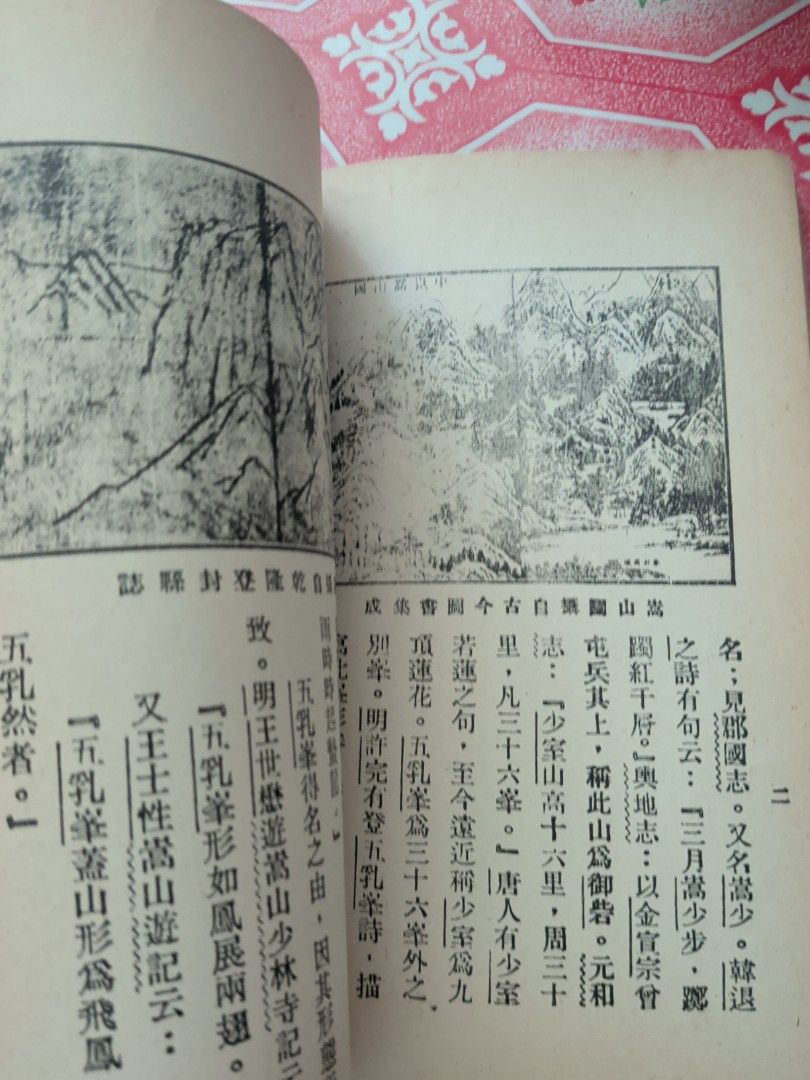 二
中嶽嵩山圖
嵩山圖攝自古今圖書集成
名；見郡國志。又名嵩少。韓退
之詩有句云：『三月嵩少步，躑
躅紅千層。』輿地志：以金宣宗曾
屯兵其上，稱此山爲御砦。元和
志：『少室山高十六里，周三十
里，凡三十六峯。』唐人有少室
若蓮之句，至今遠近稱少室爲九
頂蓮花。五乳峯爲三十六峯外之
別峯。明許完有登五乳峯詩，描
自乾隆登封縣誌
雨時時起
五乳峯得名之由，因其形
致。明王世懋遊嵩山少林寺記云
『五乳峯形如鳳展兩翅。
又王士性嵩山遊記云：
『五乳峯蓋山形爲飛鳳
五乳然者。』